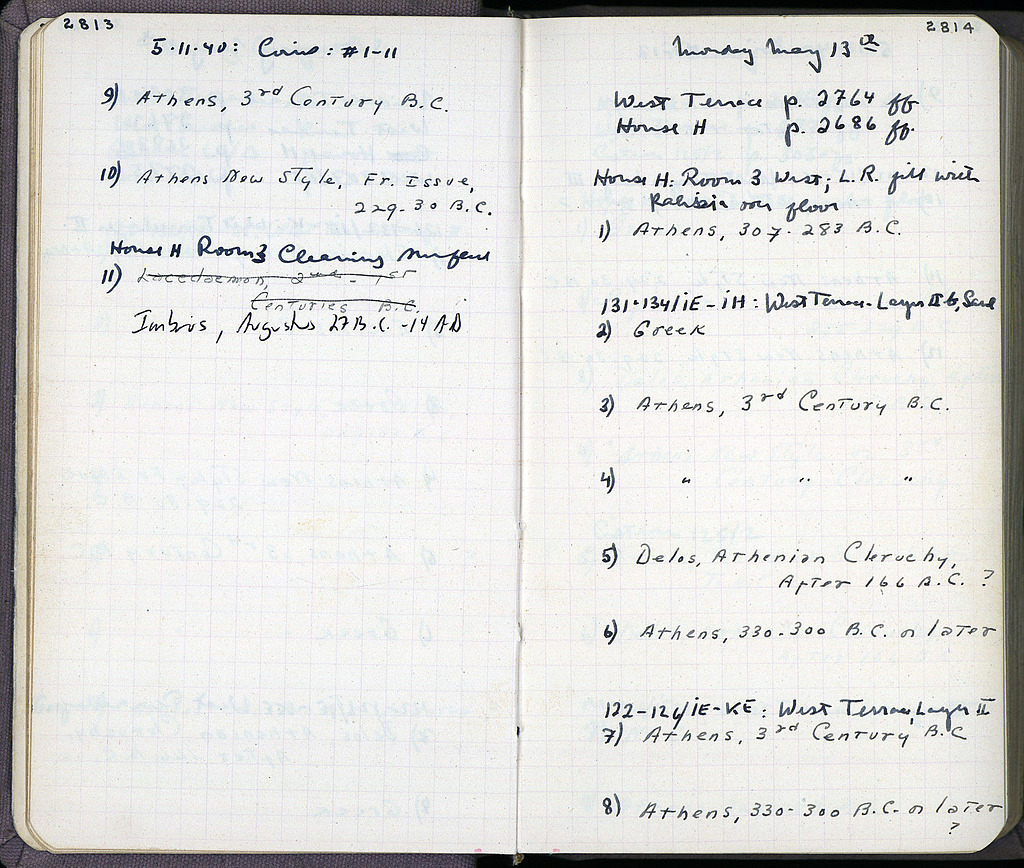 2813
5·11·40: Coins: #1-11
9) Athens, 3rd Century B.C.
10) Athens New Style, Fr. Issue,
229-30 B.C.
House H Room 3 Cleaning surface
11) Lacedaemon, 2nd - 1st
Centuries B.C.
Imbros, Augustus 27 B.C. -14 AD
2814
Monday May 13th
West Terrace p. 2764 ff
House H p. 2686 ff.
House H: Room 3 West; L.R. fill with
over floor
1) Athens, 307-283 B.C.
131-134/ΙΕ-ΙΗ: West Terrace- Layer II b, Sand
2) Greek
3) Athens, 3rd Century B.C.
4) " " "
5) Delos, Athenian Cleruchy,
After 166 B.C. ?
6) Athens, 330-300 B.C. or later
122-126/ΙΕ-ΚΕ: West Terrace, Layer II
7) Athens, 3rd Century B.C
8) Athens, 330-300 B.C. or later
?